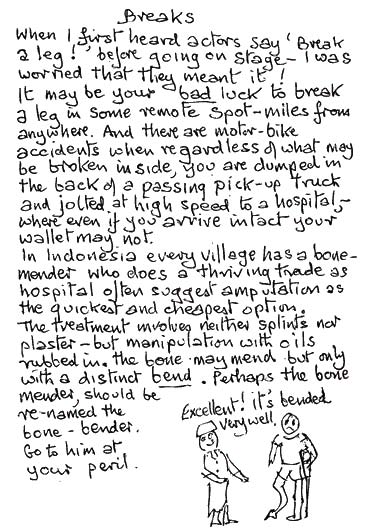 Breaks
When I first heard actors say 'Break
a leg!' before going on stage - I was
worried that they meant it!
It may be your bad luck to break
a leg in some remote spot - miles from
anywhere. And there are motor-bike
accidents when regardless of what may
be broken inside, you are dumped in
the back of a passing pick-up truck
and jolted at high speed to a hospital,-
where even if you arrive intact your
wallet may not.
In Indonesia every village has a bone-
mender who does a thriving trade as
hospital often suggest amputation as
the quickest and cheapest option.
The treatment involves neither splints nor
plaster - but manipulation with oils
rubbed in. the bone may mend but only
with a distinct bend. Perhaps the bone
mender, should be
re-named the
bone - bender.
Go to him at
your peril.
Excellent! it's bended
very well.